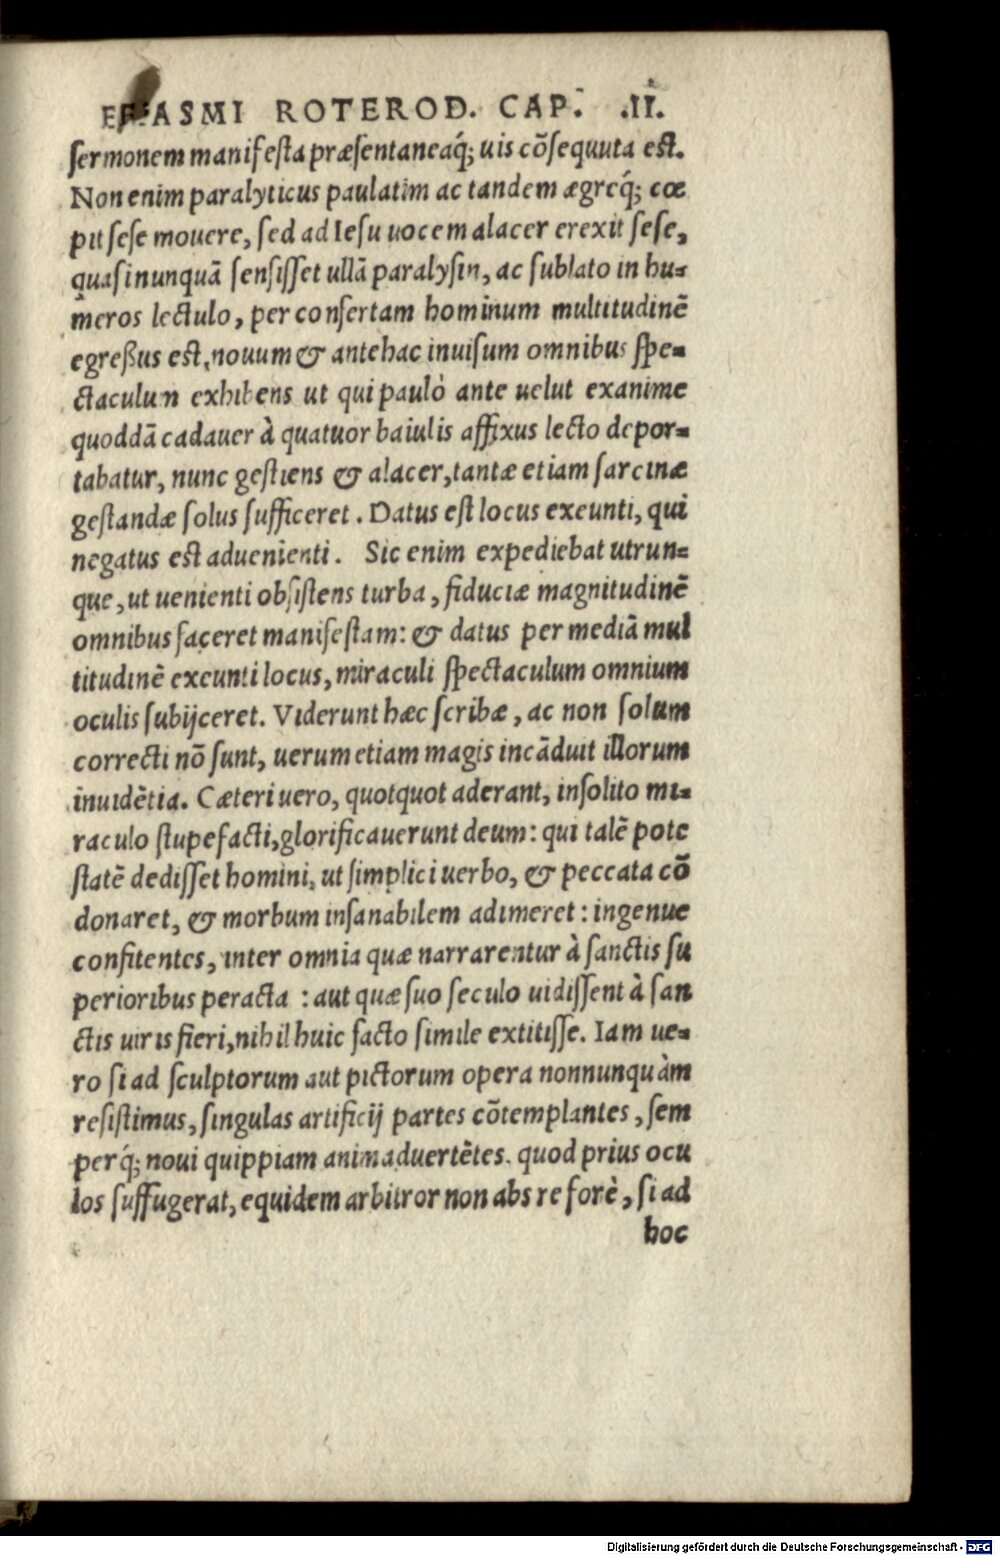 ERASMI ROTEROD. CAP. .II.
sermonem manifesta præsentaneaq́; uis cōsequuta est.
Non enim paralyticus paulatim ac tandem ægreq́; cœ
pit sese mouere, sed ad Iesu uocem alacer erexit sese,
quasi nunquā sensisset ullā paralysin, ac sublato in hu=
meros lectulo, per confertam hominum multitudinē
egreßus est, nouum & antehac inuisum omnibus spe=
ctaculun exhibens ut qui paulò ante uelut exanime
quoddā cadauer à quatuor baiulis affixus lecto depor=
tabatur, nunc gestiens & alacer, tantæ etiam sarcinæ
gestandæ solus sufficeret. Datus est locus exeunti, qui
negatus est aduenienti. Sic enim expediebat utrun=
que, ut uenienti obsistens turba, fiduciæ magnitudinē
omnibus faceret manifestam: & datus per mediā mul
titudinē exeunti locus, miraculi spectaculum omnium
oculis subijceret. Viderunt hæc scribæ, ac non solum
correcti nō sunt, uerum etiam magis incāduit illorum
inuidētia. Cæteri uero, quotquot aderant, insolito mi=
raculo stupefacti, glorificauerunt deum: qui talē pote
statē dedisset homini, ut simplici uerbo, & peccata cō
donaret, & morbum insanabilem adimeret: ingenue
confitentes, inter omnia quæ narrarentur à sanctis su
perioribus peracta : aut quæ suo seculo uidissent à san
ctis uiris fieri, nihil huic facto simile extitisse. Iam ue=
ro si ad sculptorum aut pictorum opera nonnunquàm
resistimus, singulas artificij partes cōtemplantes, sem
perq́; noui quippiam animaduertētes. quod prius ocu
los suffugerat, equidem arbitror non abs re forè, si ad
hoc
Digitalisierung gefördert durch die Deutsche Forschungsgemeinschaft - DFG